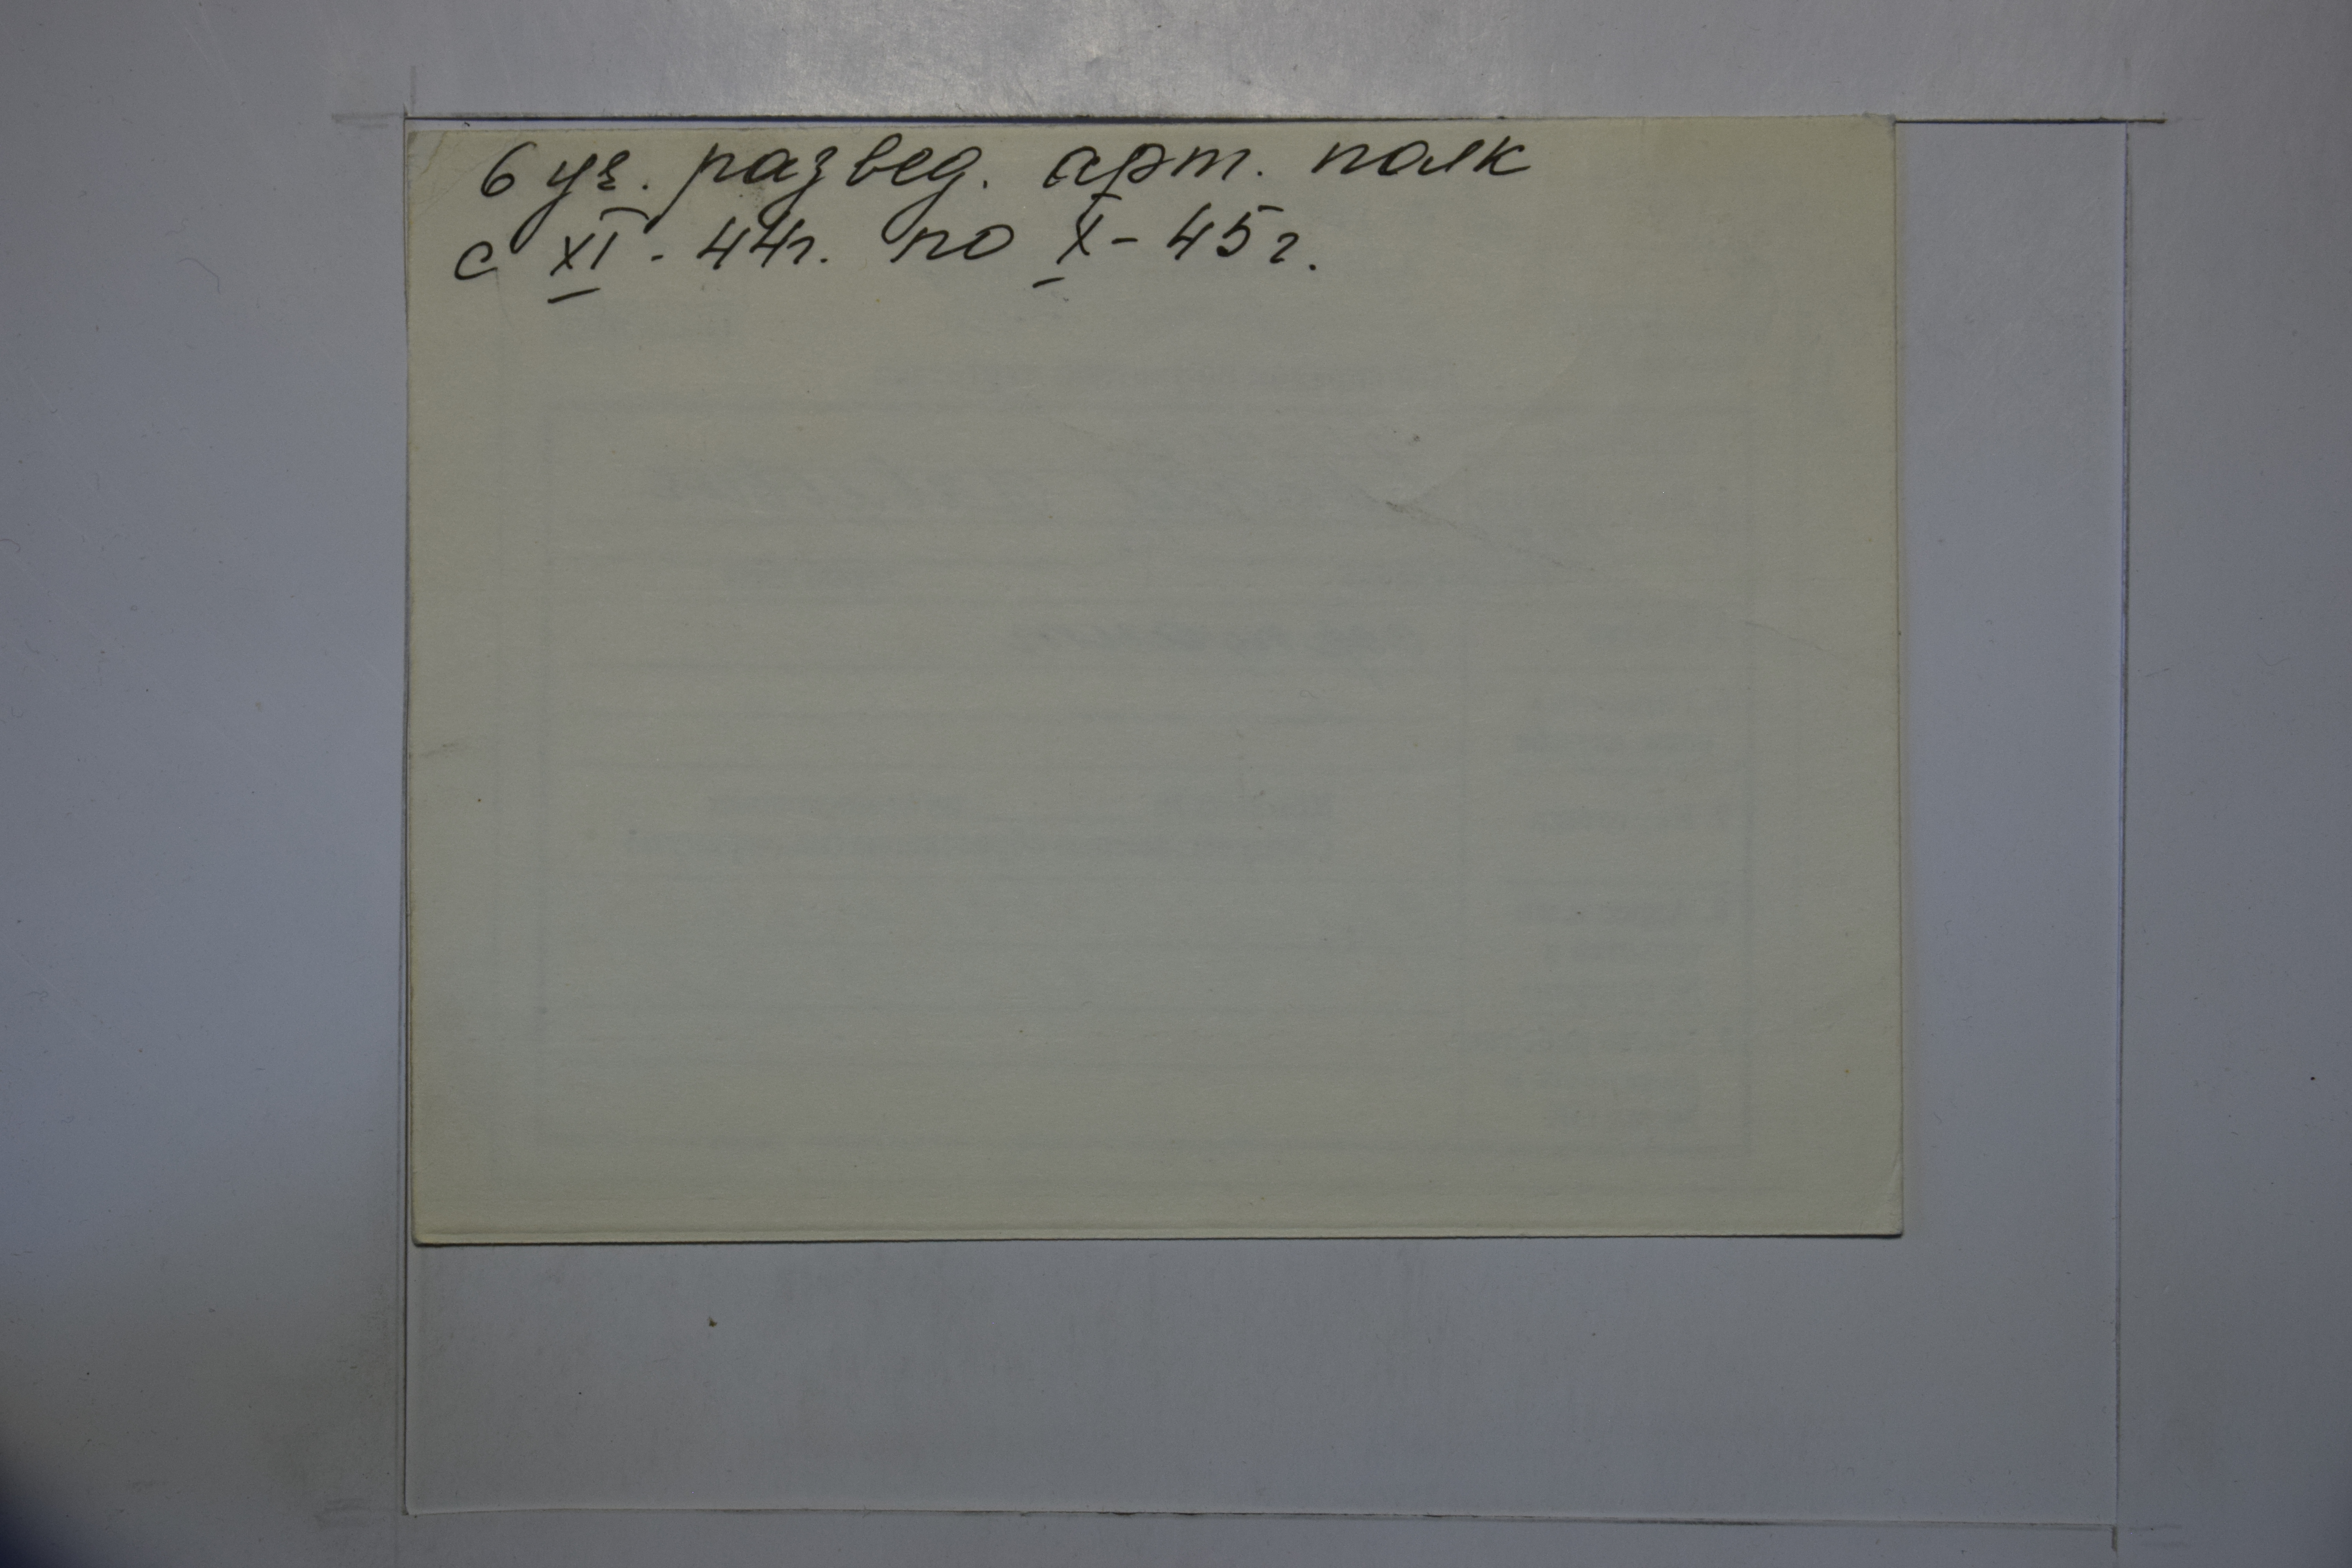 6 уч. развед. арт. полк
с XI - 44г. по X - 45г.